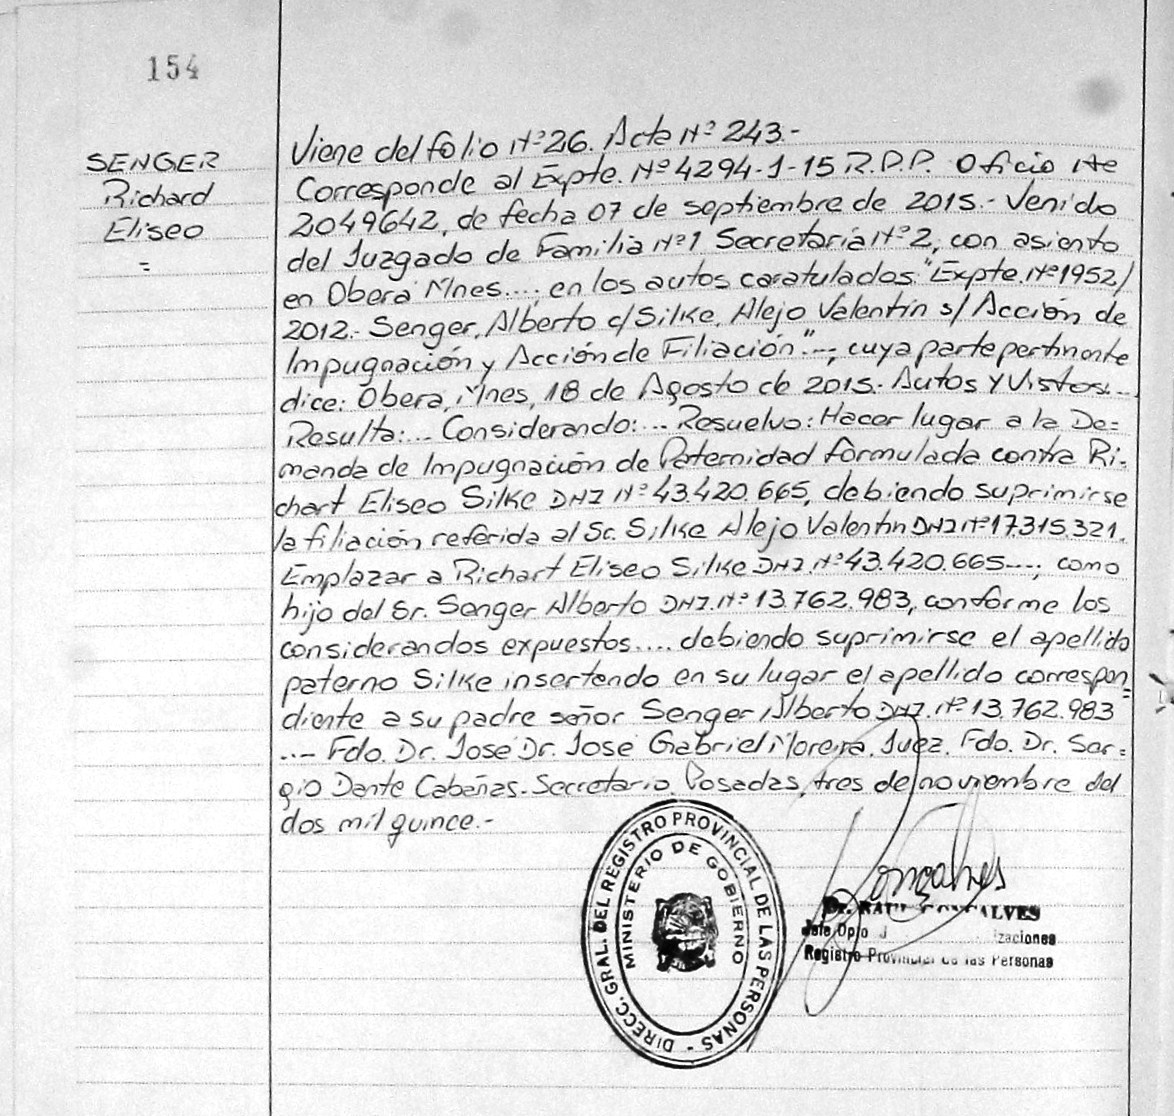 154
SENGER
Richard
Eliseo
=
Viene del folio Nº 26. Acta Nº 243.-
Corresponde al Expte. Nº 4294-1-15 R.P.P. Oficio Nº
2049642, de fecha 07 de septiembre de 2015.- Venido
del Juzgado de Familia Nº 1 Secretaria Nº 2, con asiento
en Oberá Mnes.... en los autos caratulados "Expte. Nº 1952/
2012.- Senger, Alberto c/ Silke, Alejo Valentín s/ Acción de
Impugnación y Acción de Filiación"..., cuya parte pertinente
dice: Oberá, Mnes, 18 de Agosto de 2015.- Autos y Vistos...
Resulta:... Considerando:... Resuelvo: Hacer lugar a la De=
manda de Impugnación de Paternidad formulada contra Ri-
chart Eliseo Silke DNI Nº 43.420.665, debiendo suprimirse
la filiación referida al Sr. Silke Alejo Valentín DNI Nº 17.315.321.
Emplazar a Richart Eliseo Silke DNI. Nº 43.420.665...., como
hijo del Sr. Senger Alberto DNI. Nº 13.762.983, conforme los
considerandos expuestos.... debiendo suprimirse el apellido
paterno Silke insertando en su lugar el apellido correspon=
diente a su padre señor Senger Alberto DNI. Nº 13.762.983
.... Fdo. Dr. José Dr. José Gabriel Moreira. Juez. Fdo. Dr. Ser=
gio Dante Cabañas. Secretario. Posadas, tres de noviembre del
dos mil quince.-
DIRECC. GRAL. DEL REGISTRO PROVINCIAL DE LAS PERSONAS -
MINISTERIO DE GOBIERNO
Gonçalves
Dr. RAUL GONCALVES
Jefe Dpto
Registro Provincial de las Personas